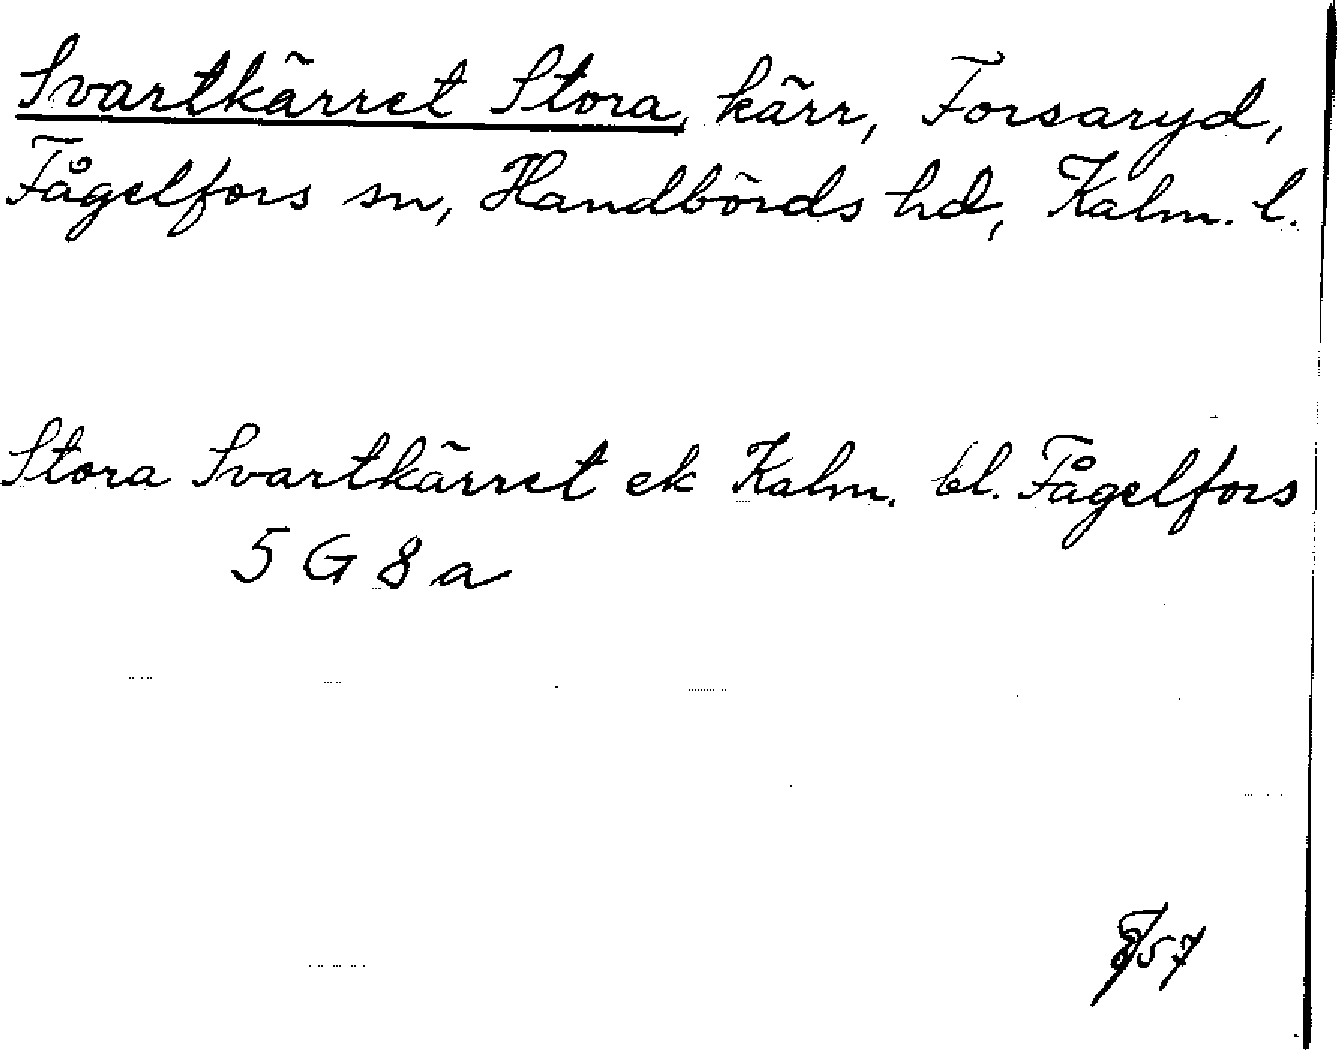 Svartkärret Stora, kärr, Forsaryd,
Fågelfors sn, Handbörds hd, Kalm. l.
Stora Svartkärret ek Kalm. bl. Fågelfors
5 G 8 a